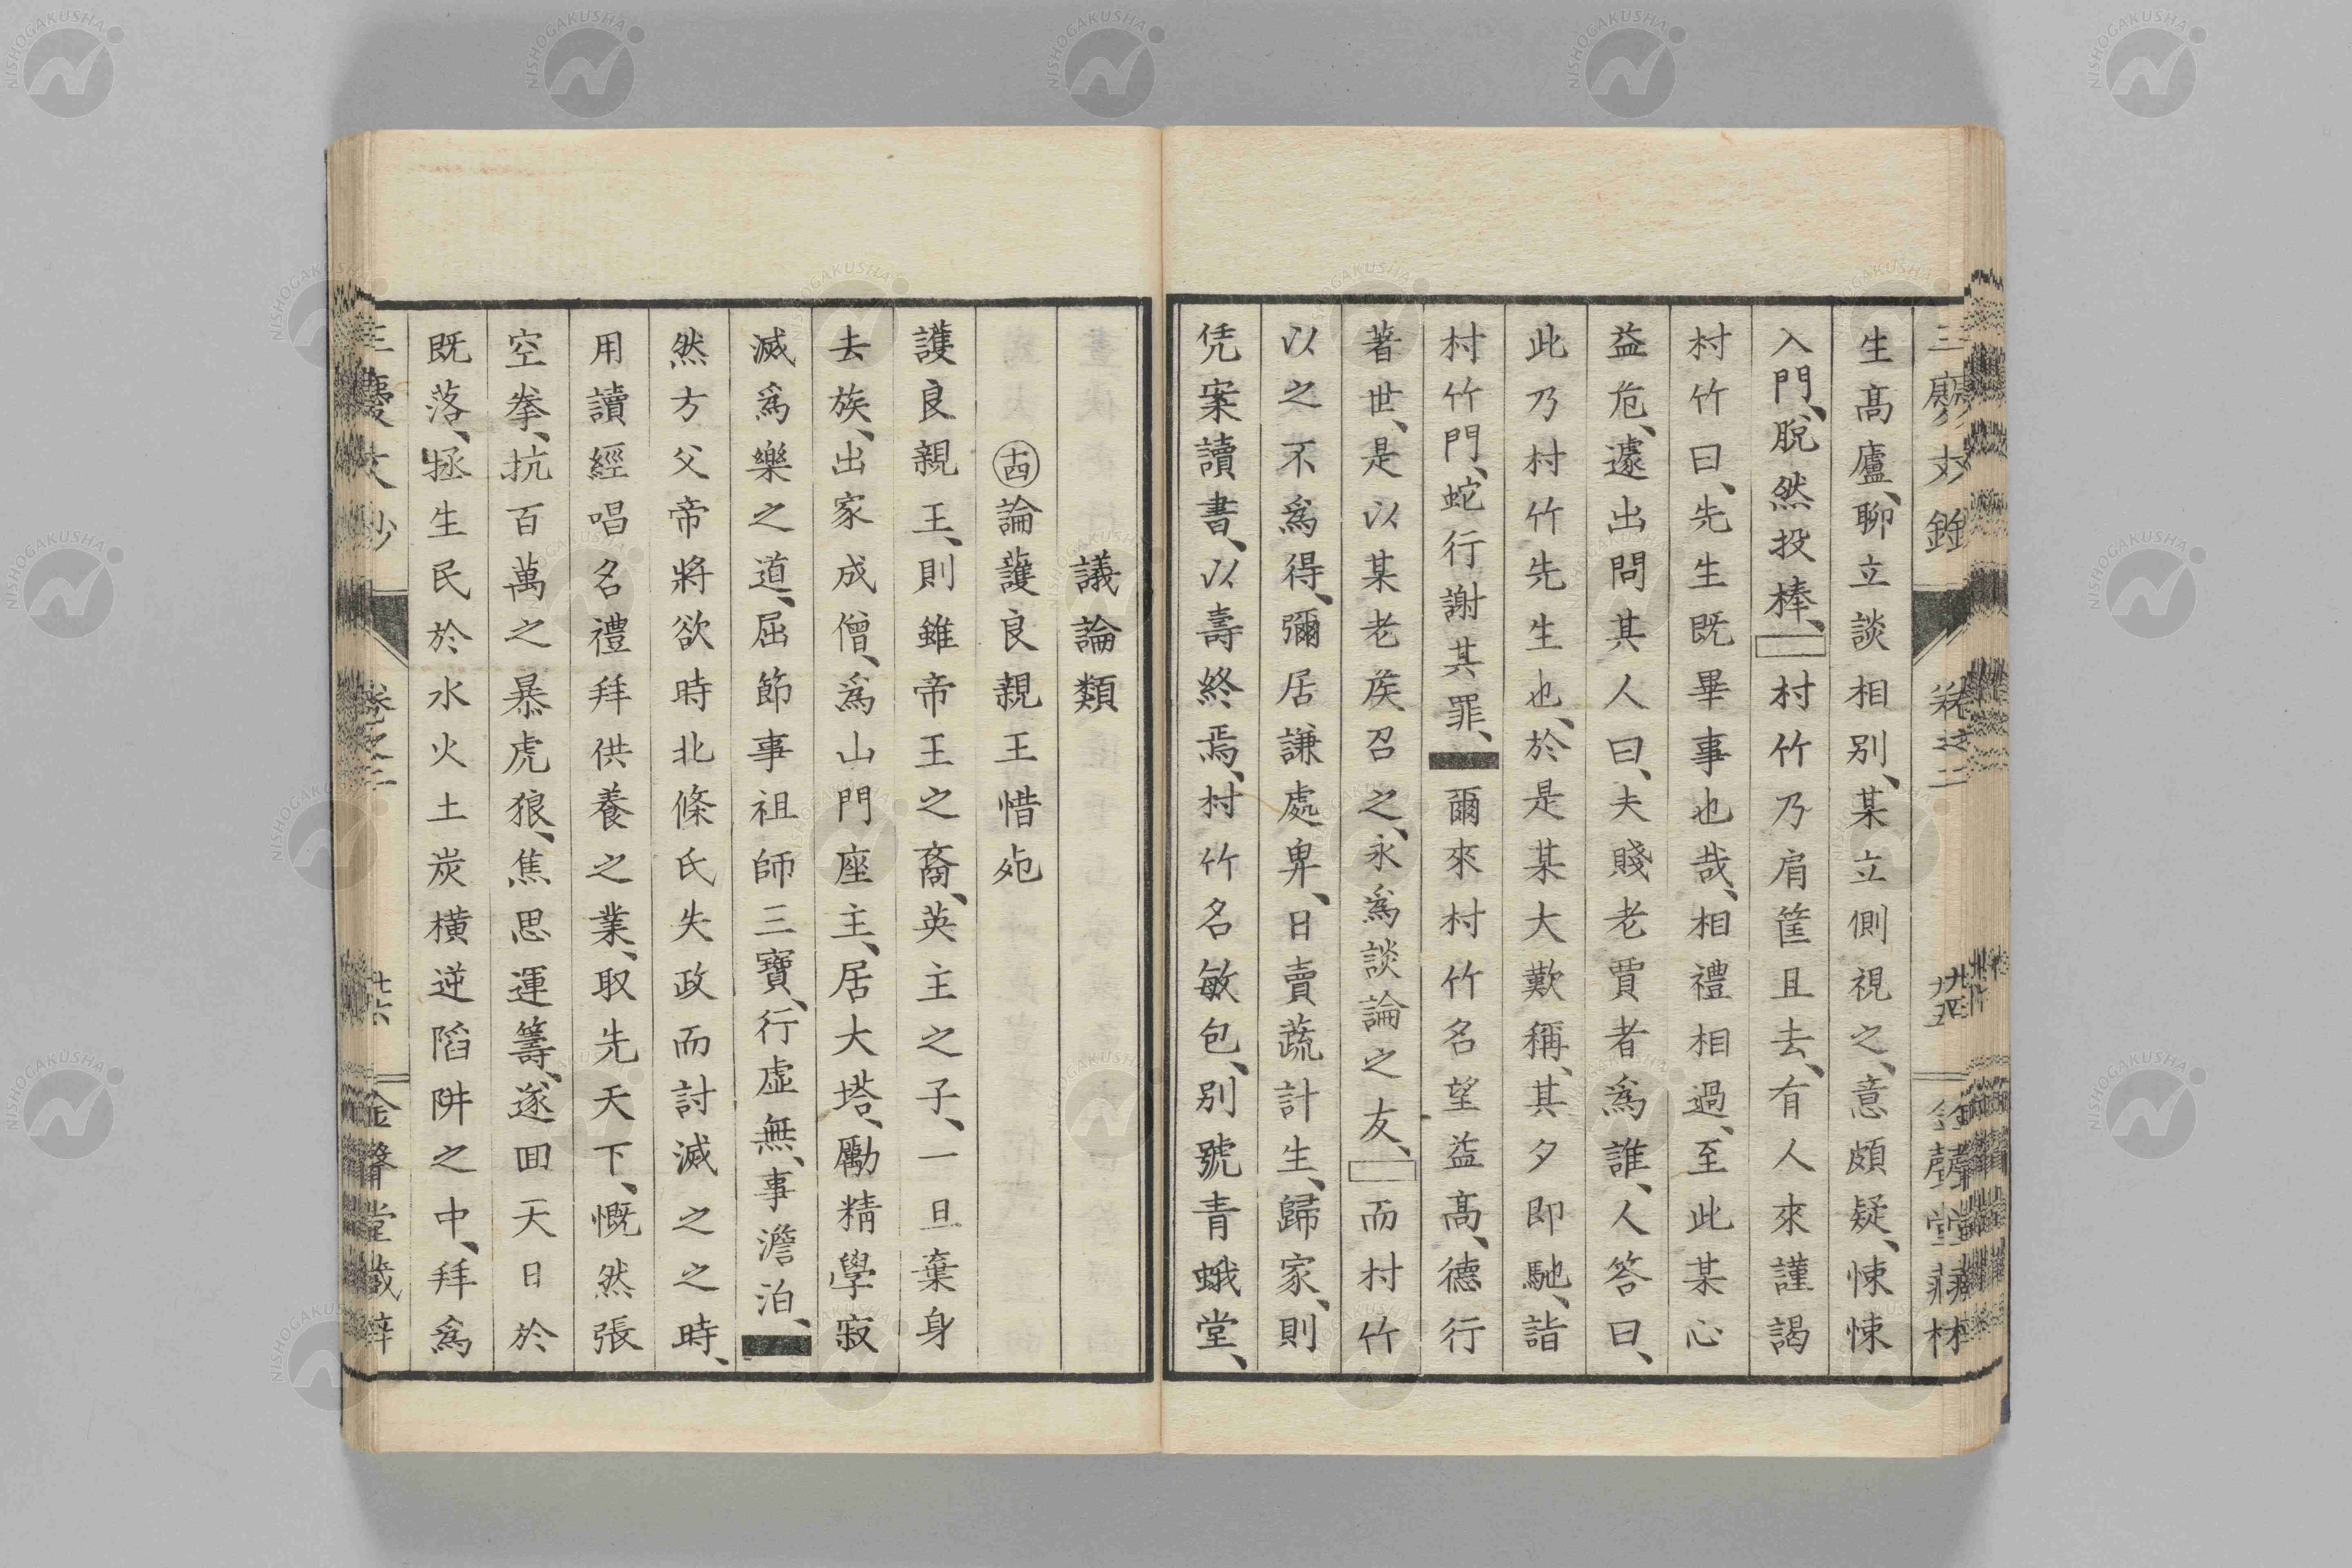 生高廬、聊立談相別、某立側視之、意頗疑、悚悚
入門、脫然投棒、村竹乃肩筐且去、有人來謹謁
村竹曰、先生既畢事也哉、相禮相過、至此某心
益危、遽出問其人曰、夫賤老賈者爲誰、人答曰、
此乃村竹先生也、於是某大歎稱、其夕即馳、詣
村竹門、蛇行謝其罪、爾來村竹名望益高、德行
著世、是以某老矦召之、永爲談論之友、而村竹
以之不爲得、彌居謙處卑、日賣蔬計生、歸家、則
凭案讀書、以壽終焉、村竹名敏包、別號青蛾堂、
議論類
十四論護良親王惜死
護良親王、則雖帝王之裔、英主之子、一旦棄身
去族、出家成僧、爲山門座主、居大塔、勵精學寂
滅爲樂之道、屈節事祖師三寶、行虛無、事澹泊、
然方父帝將欲時北條氏失政而討滅之之時、
用讀經唱名禮拜供養之業、取先天下、慨然張
空拳、抗百萬之暴虎狼、焦思運籌、遂回天日於
既落、拯生民於水火土炭橫逆陷阱之中、拜爲
卷之二
廿六
金聲堂藏梓
NISHOGAKUSHA